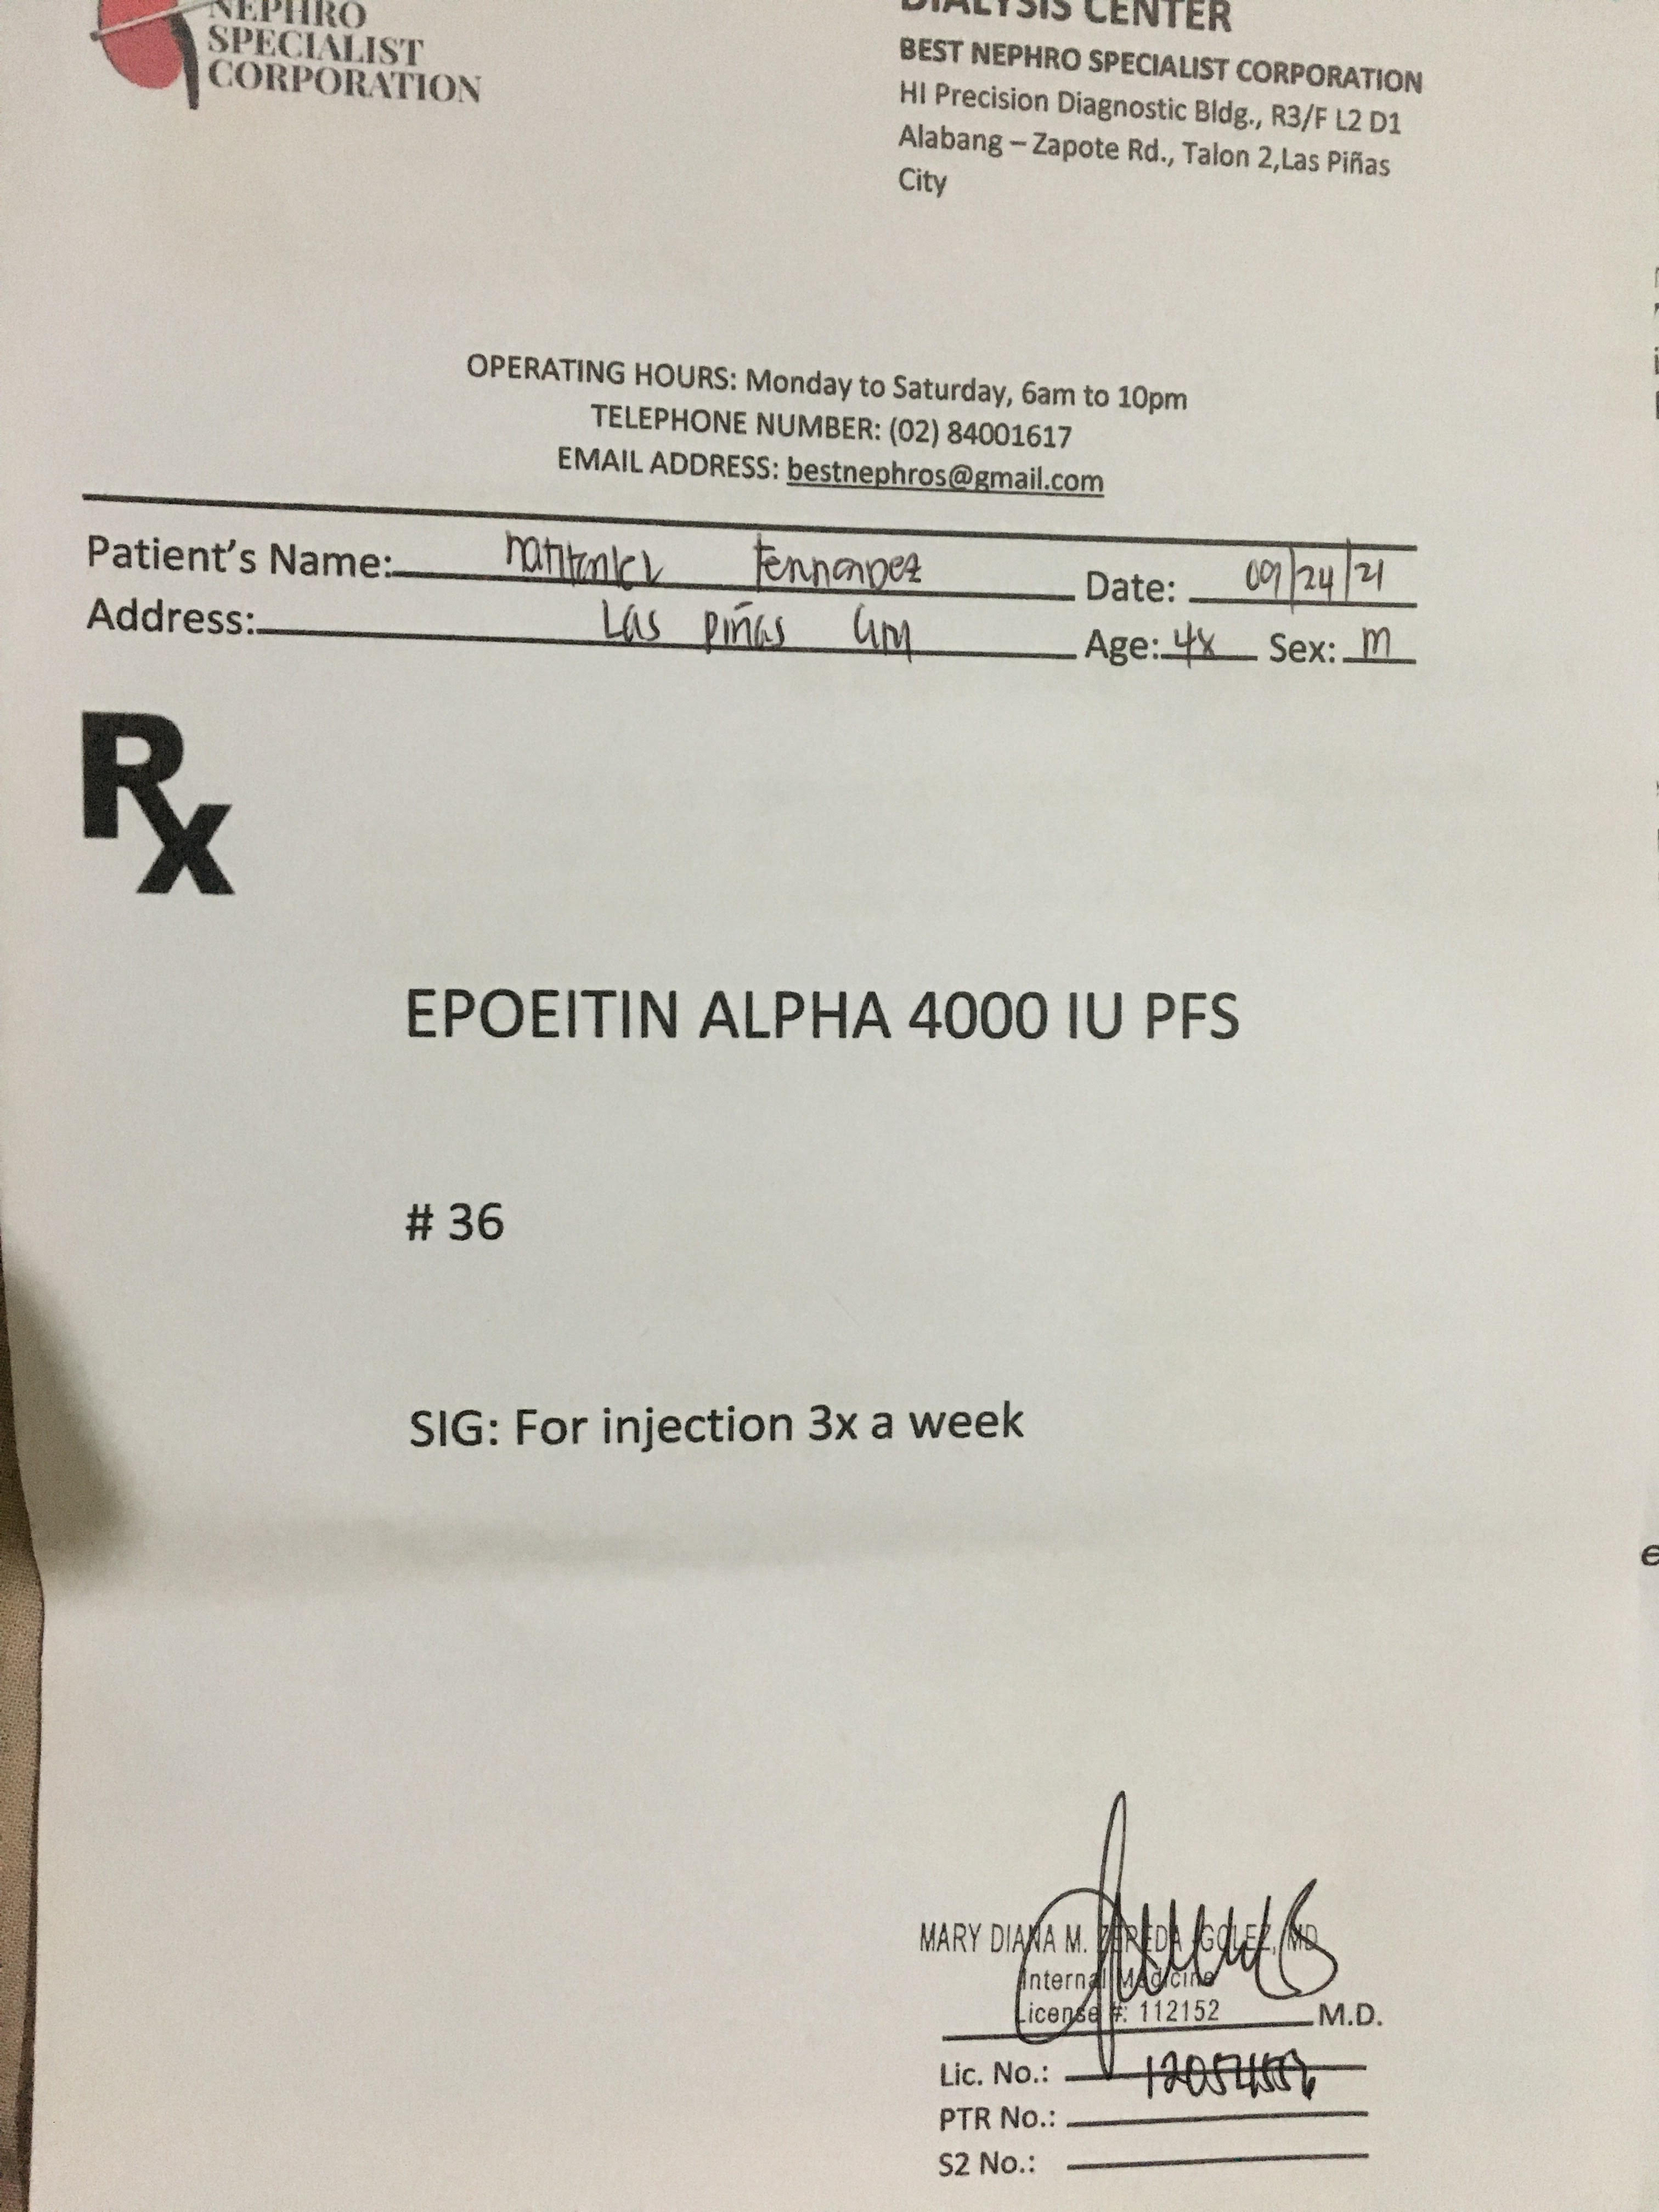 NEPHRO
SPECIALIST
CORPORATION
DIALYSIS CENTER
BEST NEPHRO SPECIALIST CORPORATION
HI Precision Diagnostic Bldg., R3/F L2 D1
Alabang – Zapote Rd., Talon 2,Las Piñas
City
OPERATING HOURS: Monday to Saturday, 6am to 10pm
TELEPHONE NUMBER: (02) 84001617
EMAIL ADDRESS: bestnephros@gmail.com
Patient's Name: Fernandez Date: 09/24/21
Address: Las Piñas City Age: Sex: M
Rx
EPOEITIN ALPHA 4000 IU PFS
# 36
SIG: For injection 3x a week
MARY DIANA M. ZEPEDA-GOLEZ, MD
Internal Medicine
License #: 112152 M.D.
Lic. No.:
PTR No.:
S2 No.: